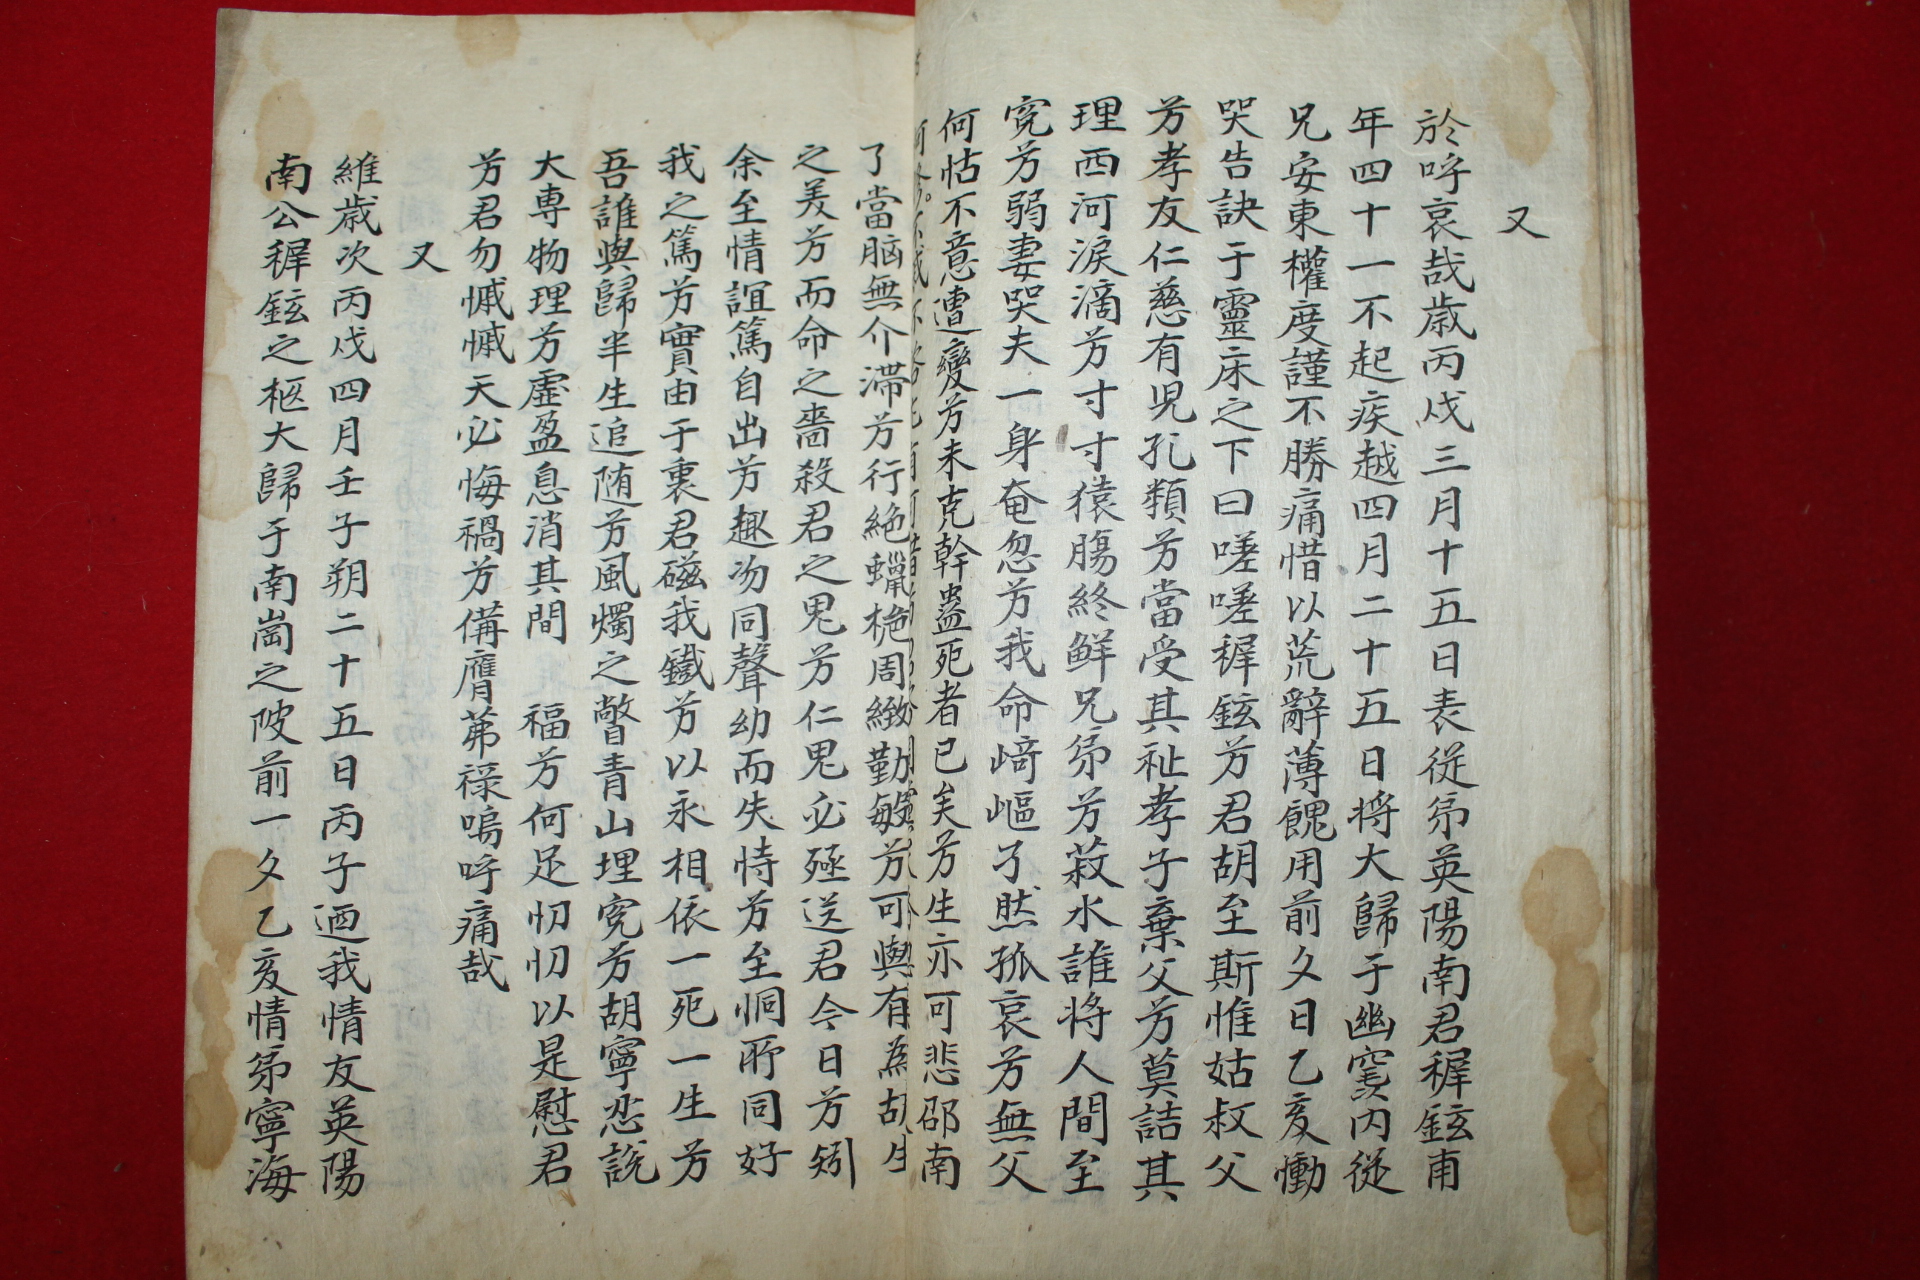 又
於呼哀哉歲丙戌三月十五日表從弟英陽南君穉鉉甫
年四十一不起疾越四月二十五日將大歸于幽窀內從
兄安東權度謹不勝痛惜以荒辭薄餽用前夕日乙亥慟
哭告訣于靈床之下曰嗟嗟穉鉉芳君胡至斯惟姑叔父
芳孝友仁慈有児孔類芳當受其祉孝子棄父芳莫詰其
理西河淚滴芳寸寸猿腸終鮮兄弟芳菽水誰將人間至
寃芳弱妻哭夫一身奄忽芳我命崎嶇孑然孤哀芳無父
何怙不意遭變芳未克幹蠱死者已矣芳生亦可悲邵南
了當脳無介滞芳行絶蠟梔周緻勤敏芳可與有為胡
之美芳而命之嗇殺君之鬼芳仁鬼必殛送君今日芳矧
余至情誼篤自出芳趣沕同聲幼而失恃芳至恫所同好
我之篤芳實由于衷君磁我鐵芳以永相依一死一生芳
吾誰與歸半生追随芳風燭之瞥青山埋寃芳胡寧忍說
大專物理芳虛盈息消其間 福芳何足忉忉以是慰君
芳君勿慽慽天必悔禍芳備膺茀祿嗚呼痛哉
又
維歲次丙戌四月壬子朔二十五日丙子迺我情友英陽
南公穉鉉之柩大歸于南崗之陂前一夕乙亥情弟寧海